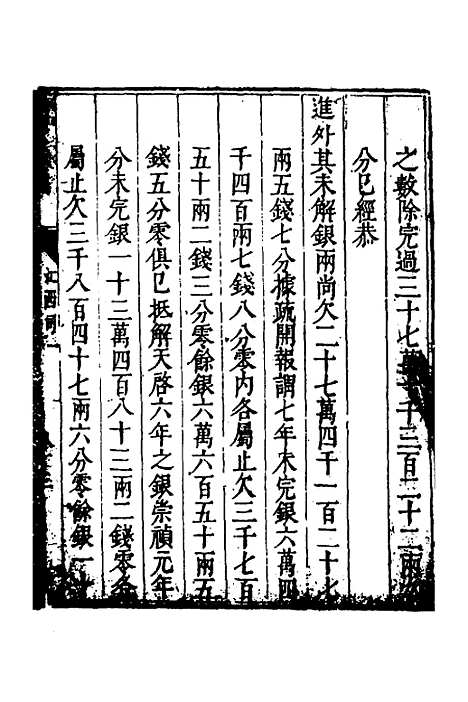 之數除完過三十七萬 千三百二十二兩
分已經恭
進外其未解銀兩尚欠二十七萬四千一百二十七
兩五錢七分據疏開報謂七年未完銀六萬四
千四百兩七錢八分零內各屬止欠三千七百
五十兩二錢三分零餘銀六萬六百五十兩五
錢五分零俱已抵解天啓六年之銀崇禎元年
分未完銀一十三萬四百八十三兩二錢零各
屬止欠三千八百四十七兩六分零餘銀一十
江西司